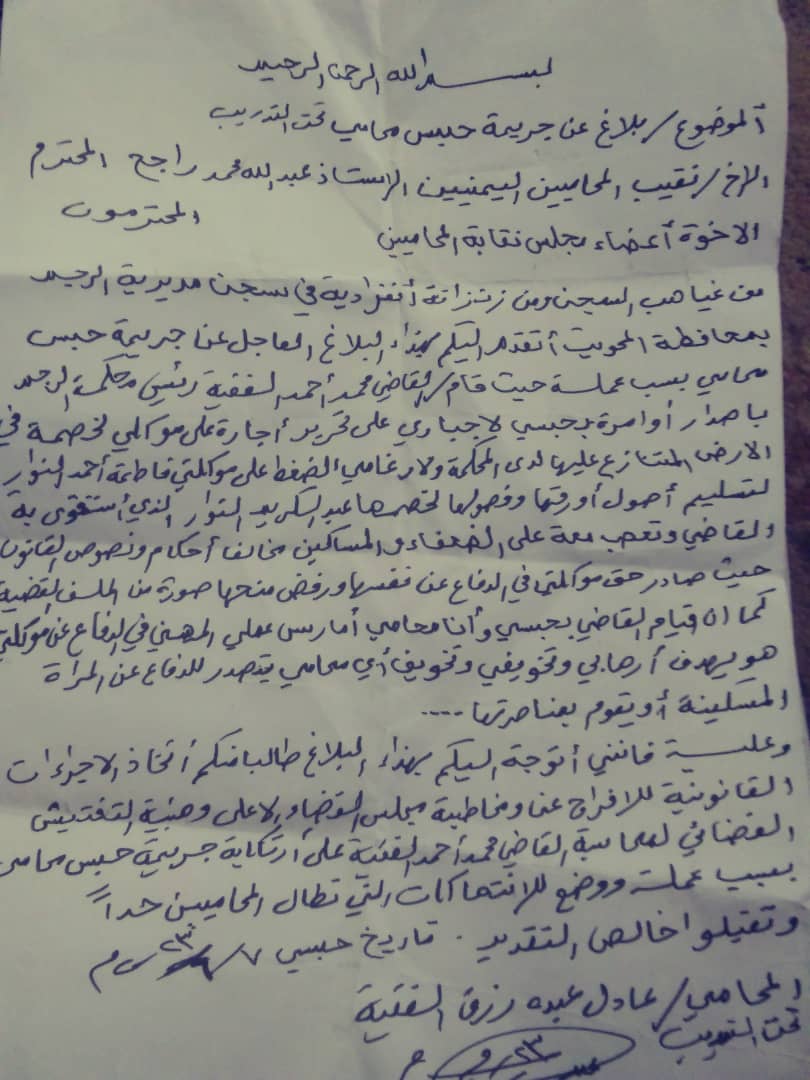 بسم الله الرحمن الرحيم
الموضوع/ بلاغ عن جريمة حبس محامي تحت التدريب
الاخ/ نقيب المحاميين اليمنيين الاستاذ عبدالله محمد راجح المحترم
الاخوة أعضاء مجلس نقابة المحاميين المحترمون
من غياهب السجن ومن زنزانة أنفرادية في سجن مديرية الرجم
بمحافظة المحويت أتقدم اليكم بهذاء البلاغ العاجل عن جريمة حبس
محامي بسب عملة حيث قام/ القاضي محمد أحمد الفقية رئيس محكمة الرجم
باصدار أوامرة بحبسي لاجباري على تحرير أجارة على موكلي لخصمة في
الارض المتنازع عليها لدى المحكمة ولارغامي الضغط على موكلتي فاطمة أحمد النوار
لتسليم أصول أورقها وفصولها لخصمها عبدالكريم النوار الذي أستقوى به
القاضي وتعصب معة على الضعفاء والمساكين مخالف أحكام ونصوص القانون
حيث صادر حق موكلتي في الدفاع عن نفسها ورفض منحها صورة من الملف القضية
كما ان قيام القاضي بحبسي وأنا محامي أمارس عملي المهني في الدفاع عن موكلتي
هو يهدف أرهابي وتخويفي وتخويف أي محامي يتصدر للدفاع عن المرأة
المسكينة أو يقوم بمناصرتها ....
وعلية فانني أتوجة اليكم بهذاء البلاغ طالبا منكم أتخاذ الاجراءات
القانونية للافراج عنا ومخاطبة مجلس القضاء الاعلى وهيئة التفتيش
القضائي لمحاسبة القاضي محمد أحمد الفقية على أرتكابة جريمة حبس محامي
بسبب عملة ووضع للانتهاكات التي تطال المحاميين حداً
وتقبلوا خالص التقدير . تاريخ حبسي ٧/ ٢٣ م
المحامي/ عادل عبده رزق الفقية
تحت التدريب
٢٣ م